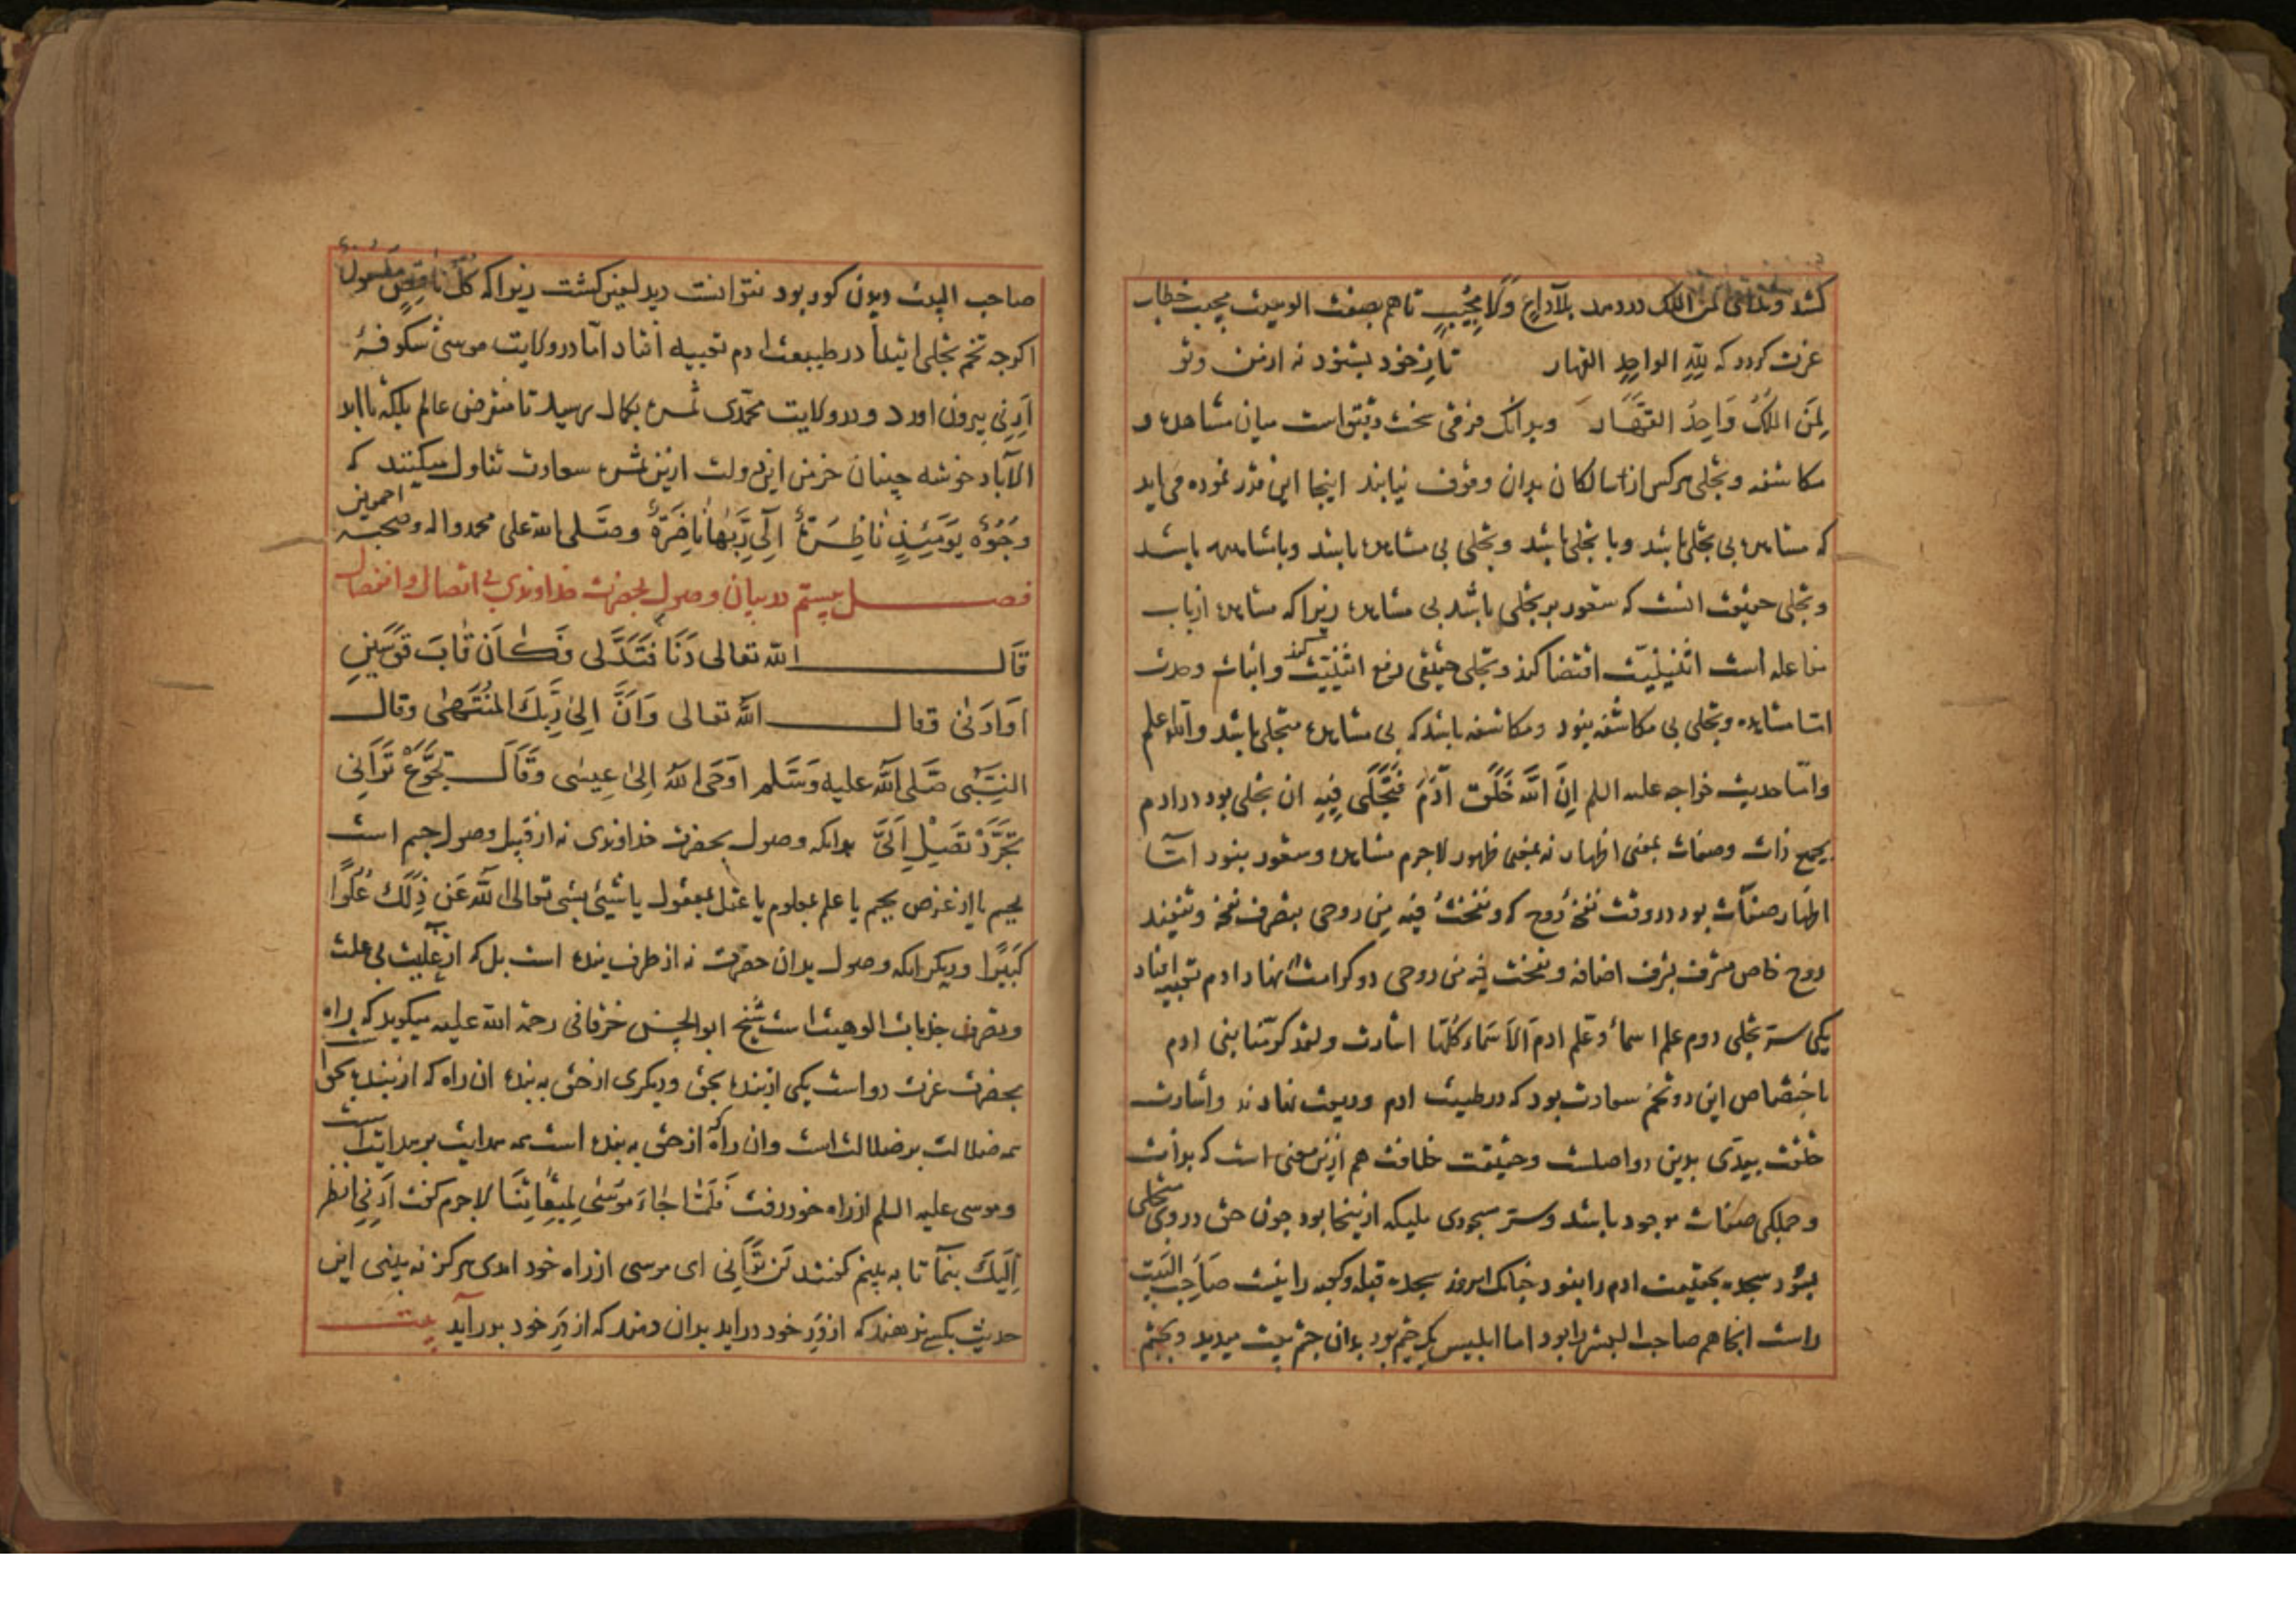 کشد وندای لمن الملک دردمد بلاداعٍ وَلَا مُجُیْبٍ تا هم بصفت الوهیت مجیب خطاب
عزت کردد که لِلّٰهِ الواحِدِ القهار تا زخود بشنود نه ازمن وتو
لِمَنِ المُلکُ وَاحِدُ القَهَّار وبدانک فرقی سخت دقیق است میان مشاهده و
مکاشفه وتجلی هرکس از سالکان بدان وقوف نیابند اینجا این قدر نموده می اید
که مشاهده بی تجلی باشد وبا تجلی باشد وتجلی بی مشاهده باشد وبامشاهده باشد
وتجلی حقیقت انست که شعور بر تجلی باشد بی مشاهده زیرا که مشاهده ازباب
مفاعله است اثنینیّت اقتضا کند وتجلی حقیقی رفع اثنینیّت کند واثبات وحدت
امّا مشاهده وتجلی بی مکاشفه نبود ومکاشفه باشد که بی مشاهده متجلی باشد والله اعلم
وامّا حدیث خواجه علیه السلم اِنَّ اللّٰهَ خَلَقَ آدَمَ فَتَجَلَّی فِیْهِ ان تجلی بود در ادم
بجمیع ذات وصفات بمعنی اظهار نه بمعنی ظهور لاجرم مشاهده وشعور نبود امّا
اظهار صفات بود در وقت نفخهٔ روح که ونفختُ فیه مِن روحی بتصرف نفخه وتنفید
روح خاص مشرف بشرف اضافه ونفخت فیه من روحی دو کرامت نهاد ادم تعبیه افتاد
یکی ستر تجلی دوم علم اسما وعلم ادم الاَسَماء کُلّها اشارت ولقد کرّمنا بنی ادم
باختصاص این دو تخم سعادت بود که در طینت ادم ودیعت نهادند واشارت
خلقت بیدَی بدین دو اصلست وحقیقت خلافت هم ازین معنی است که بذات
وجملکی صفات موجود باشد وستر مسجودی ملیکه ازینجا بود چون حق در وی متجلی
بشود سجده بحقیقت ادم را نبود چنانک امروز سجده قبله وکعبه را نیست صاحب البیت
راست انجا هم صاحب البیت را بود اما ابلیس یک چشم بود بدان چشم بیت میدید وبچشم
صاحب البیت دیدن کور بود نتوانست دید لعین کشت زیرا که کُلّ ناقِصٍ مَلْعول
اکرچه تخم تجلی ابتداً در طینت ادم تعبیه افتاد امّا در ولایت موسی شکوفهٔ
اَرِنِی بیرون اورد ودر ولایت محمّدی ثمره بکمال رسید تا منقرض عالم بلکه تا ابد
الآباد خوشه چینان خرمن این دولت ازین ثمره سعادت تناول میکنند که
وُجُوْهٌ یَوْمَئِذٍ نَاظِرَةٌ اِلَی رَبِّهَا نَاضِرَةٌ وصَلَّی الله علی محمد واله وصحبه اجمعین
فصـل بیستم در بیان وصول بحضرت خداوندی بی اتصال و انفصال
قَالـــ الله تعالی دَنَا فَتَدَلَّی فَکَانَ قَابَ قَوْسَیْنِ
اَوْ اَدْنی وقالـــ اللّٰه تعالی وَاَنَّ اِلیٰ رَبِّکَ المُنْتَهٰی وقال
النَّبِی صَلَی اللّٰه علیه وَسَلَّم اوحَی اللّٰه اِلیٰ عِیسی وَقَالَ تَجَوَّعْ تَرَانِی
تَجَرَّدْ تَصِلْ اِلَیَّ بدانکه وصول بحضرت خداوندی نه از قبیل وصول جسم است
بجسم یا از عرض بجسم یا علم بمعلوم یا عقل بمعقول یا شئی بشی تعالی اللّٰه عَن ذٰلِکَ عُلُوًّا
کَبِیْرًا ودیکر انکه وصول بدان حضرت نه از طرف بنده است بل که از عنایت بی علت
وتصرف جذبات الوهیت است شیخ ابوالحسن خرقانی رحمة الله علیه میکوید که راه
بحضرت عزت دو است یکی از بنده بحق ودیکری از حق به بنده ان راه که از بنده بحق است
همه ضلالت بر ضلالت است وان راه که از حق به بنده است همه هدایت بر هدایت است
وموسی علیه السلم از راه خود رفت فَلَمَّا جٰاءَ مُوْسٰی لِمِیقَاتِنَا لاجرم کفت اَرِنِی انظر
اِلَیکَ بنما تا به بینم کفتند لَن تَرَانِی ای موسی از راه خود امدی هرکز نه بینی این
حدیث بکسی ندهند که از دَرِ خود دراید بدان دهند که از دَرِ خود بدر آید بیت